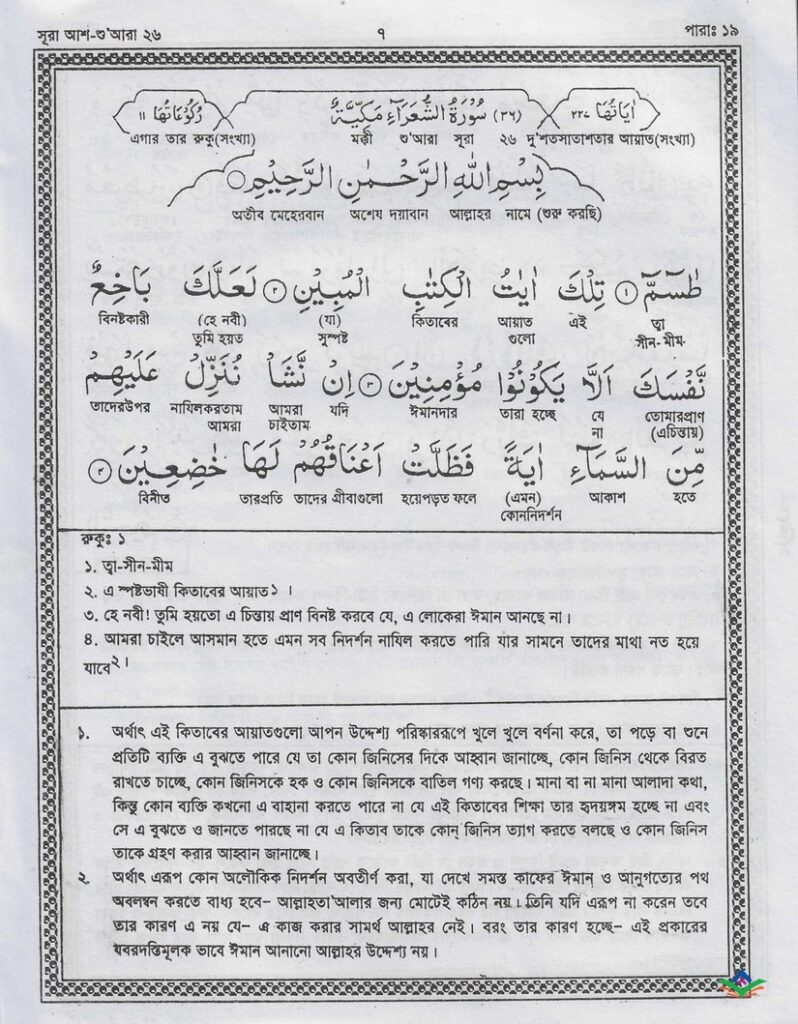 সূরা আশ-শু'আরা ২৬ ৭ পারাঃ ১৯
اٰيَاتُهَا ٢٢٧ (٢٦) سُوْرَةُ الشُّعَرَآءِ مَكِّيَّةٌ رُكُوْعَاتُهَا ١١
এগার তার রুকু(সংখ্যা) মক্কী শু'আরা সূরা ২৬ দু'শতসাতাশতার আয়াত(সংখ্যা)
بِسْمِ اللهِ الرَّحْمٰنِ الرَّحِيْمِ
অতীব মেহেরবান অশেষ দয়াবান আল্লাহর নামে (শুরু করছি)
طٰسٓمّٓ ﴿١﴾ تِلْكَ اٰيٰتُ الْكِتٰبِ الْمُبِيْنِ ﴿٢﴾ لَعَلَّكَ بَاخِعٌ
বিনষ্টকারী (হে নবী) (যা) কিতাবের আয়াত এই ত্বা
তুমি হয়ত সুস্পষ্ট গুলো সীন-মীম
نَّفْسَكَ اَلَّا يَكُوْنُوْا مُؤْمِنِيْنَ ﴿٣﴾ اِنْ نَّشَاْ نُنَزِّلْ عَلَيْهِمْ
তাদেরউপর নাযিলকরতাম আমরা যদি ঈমানদার তারা হচ্ছে যে তোমারপ্রাণ
আমরা চাইতাম না (এচিন্তায়)
مِّنَ السَّمَآءِ اٰيَةً فَظَلَّتْ اَعْنَاقُهُمْ لَهَا خٰضِعِيْنَ ﴿٤﴾
বিনীত তারপ্রতি তাদের গ্রীবাগুলো হয়েপড়ত ফলে (এমন) আকাশ হতে
কোননিদর্শন
রুকুঃ ১
১. ত্বা-সীন-মীম
২. এ স্পষ্টভাষী কিতাবের আয়াত১ ।
৩. হে নবী! তুমি হয়তো এ চিন্তায় প্রাণ বিনষ্ট করবে যে, এ লোকেরা ঈমান আনছে না।
৪. আমরা চাইলে আসমান হতে এমন সব নিদর্শন নাযিল করতে পারি যার সামনে তাদের মাথা নত হয়ে
যাবে২।
১. অর্থাৎ এই কিতাবের আয়াতগুলো আপন উদ্দেশ্য পরিষ্কাররূপে খুলে খুলে বর্ণনা করে, তা পড়ে বা শুনে
প্রতিটি ব্যক্তি এ বুঝতে পারে যে তা কোন জিনিসের দিকে আহ্বান জানাচ্ছে, কোন জিনিস থেকে বিরত
রাখতে চাচ্ছে, কোন জিনিসকে হক ও কোন জিনিসকে বাতিল গণ্য করছে। মানা বা না মানা আলাদা কথা,
কিন্তু কোন ব্যক্তি কখনো এ বাহানা করতে পারে না যে এই কিতাবের শিক্ষা তার হৃদয়ঙ্গম হচ্ছে না এবং
সে এ বুঝতে ও জানতে পারছে না যে এ কিতাব তাকে কোন্ জিনিস ত্যাগ করতে বলছে ও কোন জিনিস
তাকে গ্রহণ করার আহ্বান জানাচ্ছে।
২. অর্থাৎ এরূপ কোন অলৌকিক নিদর্শন অবতীর্ণ করা, যা দেখে সমস্ত কাফের ঈমান ও আনুগত্যের পথ
অবলম্বন করতে বাধ্য হবে– আল্লাহতা'আলার জন্য মোটেই কঠিন নয়। তিনি যদি এরূপ না করেন তবে
তার কারণ এ নয় যে– এ কাজ করার সামর্থ আল্লাহর নেই। বরং তার কারণ হচ্ছে– এই প্রকারের
যবরদস্তিমূলক ভাবে ঈমান আনানো আল্লাহর উদ্দেশ্য নয়।